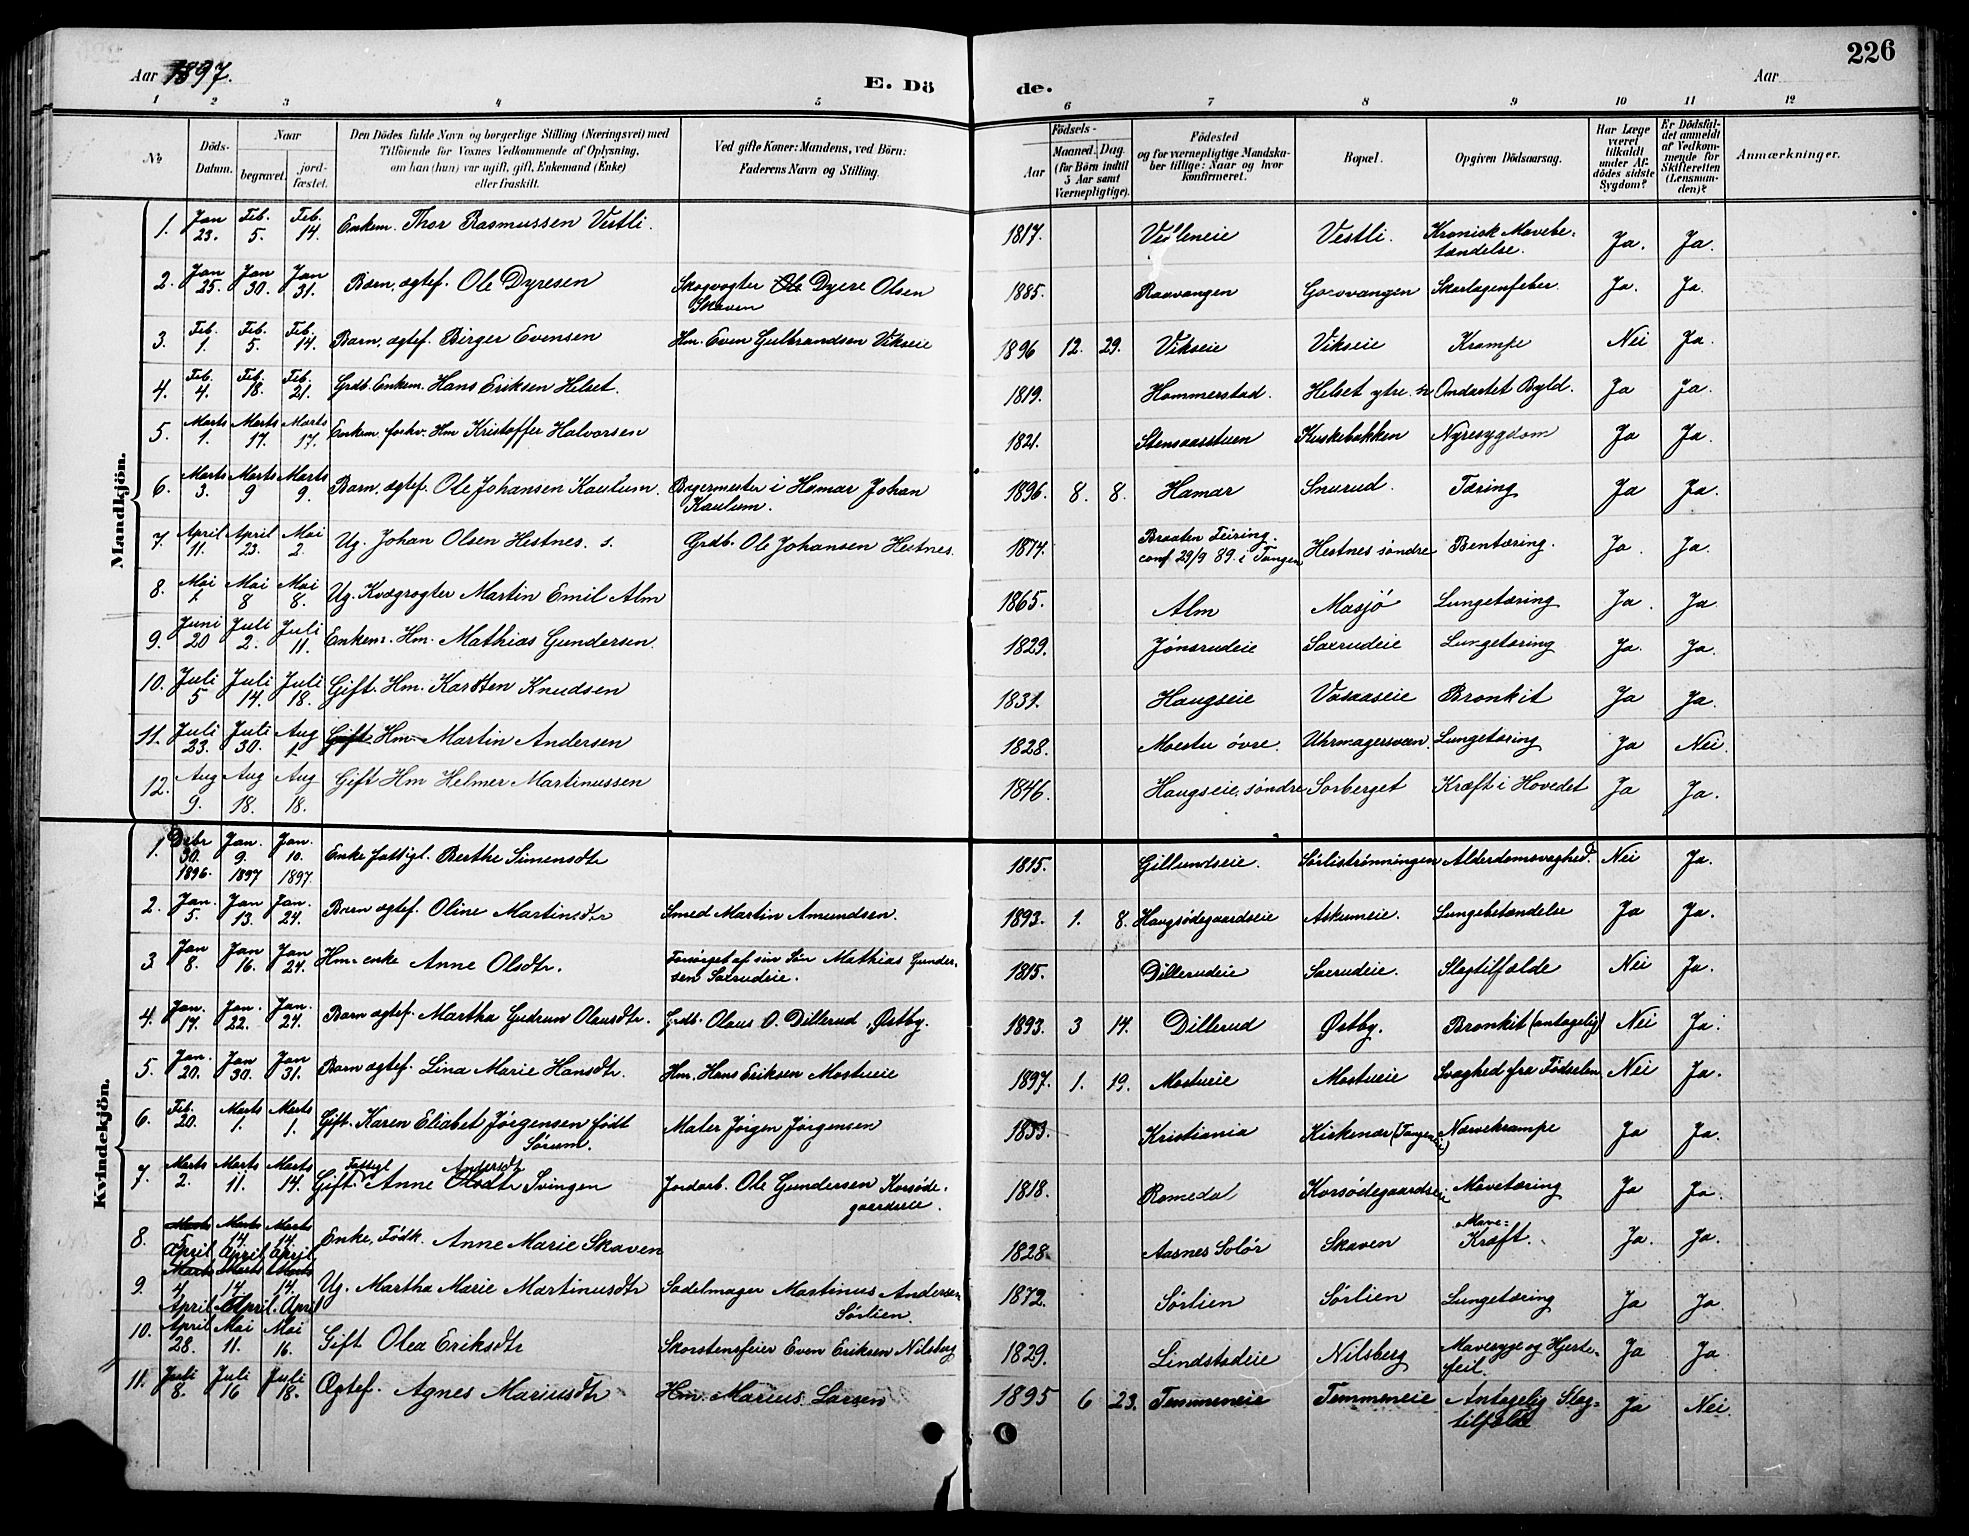 226
Aar 1897.
E. Dö
de.
Aar
1 2 3 4 5 6 7 8 9 10 11 12
No
Döds-Datum.
Naar
begravet.
jord-fæstet.
Den Dödes fulde Navn og borgerlige Stilling (Næringsvei) med
Tilföiende for Voxnes Vedkommende af Oplysning,
om han (hun) var ugift, gift, Enkemand (Enke)
eller fraskilt.
Ved gifte Koner: Mandens, ved Börn:
Faderens Navn og Stilling.
Födsels-
Aar
Maaned. Dag.
(for Börn indtil 5 Aar samt Værnepligtige).
Födested
og for værnepligtige Mandska-
ber tillige: Naar og hvor
konfirmeret.
Bopæl.
Opgiven Dödsaarsag.
Har Læge været tilkaldt under Afdödes sidste Sygdom?
Er Dödsfaldet anmeldt af Vedkommende for Skifteretten (Lensmanden)?
Anmærkninger.
Mandkjön.
1. Jan 23. Feb. 5. Feb. 14. Enkem. Thor Rasmussen Vestli. 1817. Vestli. Kronisk Mavebe-
tændelse. Ja. Ja.
2. Jan 25. Jan 30. Jan 31. Barn, ægtef. Ole Dyresen Skogvogter Ole Dyere Olsen
Skaven 1885. Raavangen Skarlagenfeber. Ja. Ja.
3. Feb. 1. Feb. 5. Feb. 14. Barn, ægtef. Birger Evensen Hm. Even Gulbrandsen Vikseie 1896 12. 29. Vikseie Vikseie Krampe Nei Ja.
4. Feb. 4. Feb. 18. Feb. 21. Grdb. Enkem. Hans Eriksen Helset. 1819. Hommerstad. Helset ytre. Ondartet Byld. Ja Ja.
5. Marts 1. Marts 17. Marts 17. Enkem forhv. Hm Kristoffer Halvorsen 1821. Stensaasstuen Kuskebakken Nyresygdom Ja Ja.
6. Marts 3. Marts 9 Marts 9. Barn, ægtef. Ole Johansen Kaulum. Bagermester i Hamar Johan
Kaulum. 1896. 8. 8. Hamar Snurud. Tæring Ja Ja.
7. April 11. April 23. Mai 2. Ug. Johan Olsen Hestnes. s. Grdb. Ole Johansen Hestnes. 1874. Braaten Feiring.
conf 29/9 89. i Tangen Hestnes søndre Bentæring. Ja. Ja.
8. Mai 1. Mai 8 Mai 8. Ug. Kvægrøgter Martin Emil Alm 1865. Alm Masjö Lungetæring Ja. Ja
9. Juni 20 Juli 2. Juli 11. Enkem. Hm. Mathias Gundersen. 1829. Jönsrudeie Saxrudeie Lungetæring Ja. Ja.
10. Juli 5 Juli 14. Juli 18. Gift. Hm. Karsten Knudsen 1831. Haugseie Vasaaseie Bronkit Ja Ja.
11. Juli 23. Juli 30. Aug 1. Gift Hm. Martin Andersen 1828. Moestu övre. Lungetæring Ja Nei.
12. Aug 9. Aug 18. Aug 18. Gift Hm Helmer Martinussen 1846. Haugseie, søndre Sorberget Kræft i Hovedet Ja Ja.
Kvindekjön.
1. Debr 30. 1896. Jan. 9. 1897 Jan. 10. 1897. Enke fattigl. Berthe Simensdtr 1815. Gillundseie. Sørlistrønningen Alderdomsvaghed. Nei Ja.
2. Jan. 5. Jan 13. Jan. 24. Barn ægtef. Oline Martinsdtr Smed Martin Amundsen. 1893. 1. 8. Haugsødegaardseie Askumeie. Lungebetændelse Ja Ja.
3 Jan 8. Jan 16. Jan 24. Hm. enke Anne Olsdtr. Forsørget af sin Søn Mathias Gunder-
sen Saxrudeie. 1815. Dillerudeie Saxrudeie. Slagtilfælde Nei Ja.
4. Jan. 17. Jan. 22. Jan. 24. Barn ægtef. Martha Gudrun Olausdtr. Grdb. Olaus O. Dillerud, Østby. 1893. 3 14. Dillerud Østby. Bronkit (antagelig) Nei Ja.
5. Jan. 20. Jan 30. Jan 31. Barn ægtef. Lina Marie Hansdtr. Hm. Hans Eriksen Mostueie 1897. 1. 19. Mostueie Mostueie Svaghed fra Fødselen Nei Ja.
6. Feb. 20. Marts 1. Marts 1. Gift. Karen Eliabet Jørgensen født
Sørum. Maler Jørgen Jørgensen 1853. Kristiania Kirkenær (Tangen) Nervekrampe Ja Ja.
7. Marts 2. Marts 11. Marts 14. Gift. Fattigl Anne Olsdtr Andersdtr Svingen Jordarb. Ole Gundersen Korsøde-
gaardseie. 1818. Romedal Korsødegaardseie Mavetæring Ja Ja.
8. Marts 5 April Marts 14. April Marts 14. April Enke, Födk. Anne Marie Skaven 1828. Aasnes Solør Skaven Mave-
Kræft. Ja. Ja.
9. Marts 4 April Marts 14. April. Marts 14. April Ug. Martha Marie Martinusdtr Sadelmager Martinus Andersen
Sørlien. 1872. Sørlien Sørlien Lungetæring Ja Ja.
10. April 28. Mai 11. Mai 16. Gift Olea Eriksdtr Skorstensfeier Even Eriksen Nilsberg 1829. Lindstadeie Nilsberg Mavesyge og Hjerte-
feil. Ja Ja.
11. Juli 8. Juli 16 Juli 18. Ægtef. Agnes Mariusdtr Hm. Marius Larsen 1895 6 23. Temmeneie Temmeneie Antagelig Slag-
tilfælde Ja Nei.